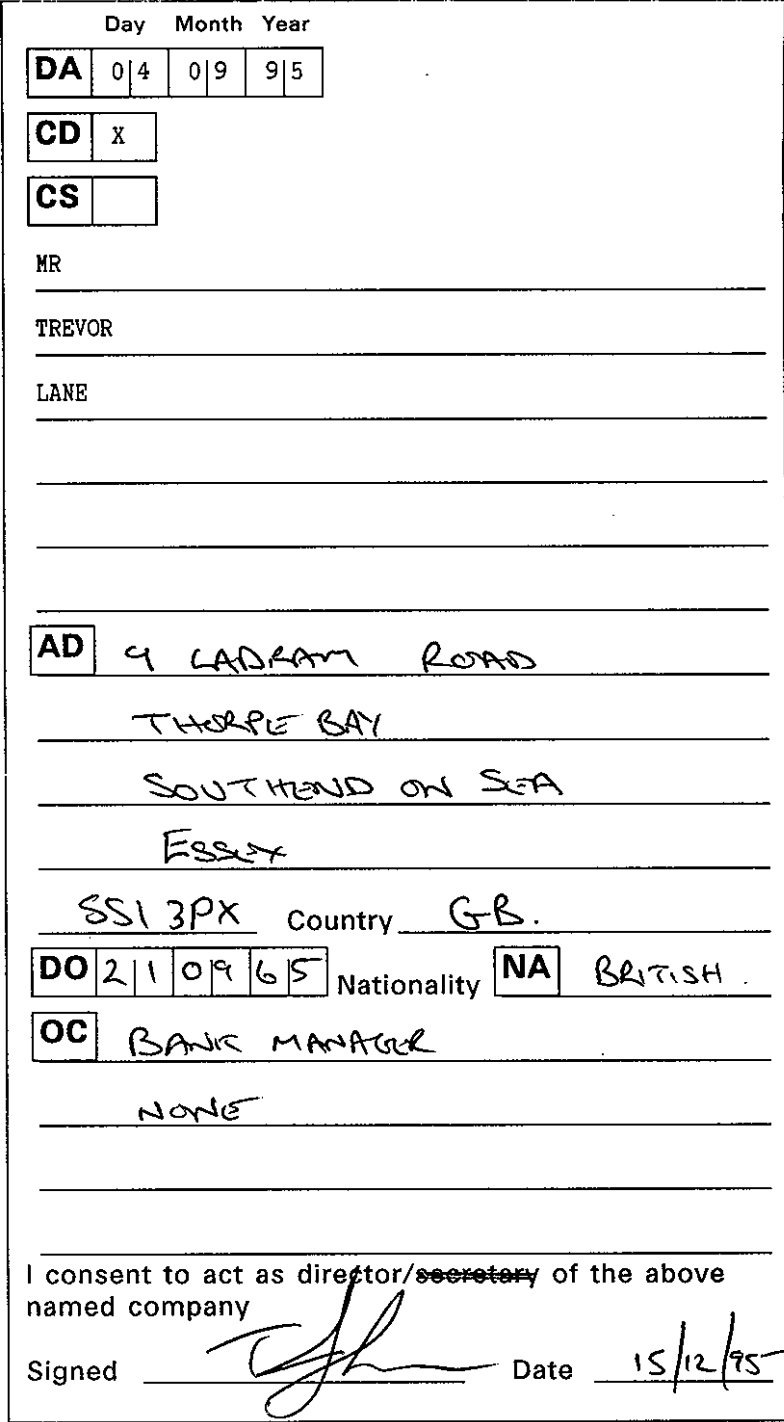 Day Month Year
DA 04 09 95
CD X
CS
MR
TREVOR
LANE
AD 9 LADRAM ROAD
THORPE BAY
SOUTHEND ON SEA
ESSEX
SS1 3PX Country GB.
DO 21 09 65 Nationality NA BRITISH.
OC BANK MANAGER
NONE
I consent to act as director/secretary of the above
named company
Signed Date 15/12/95